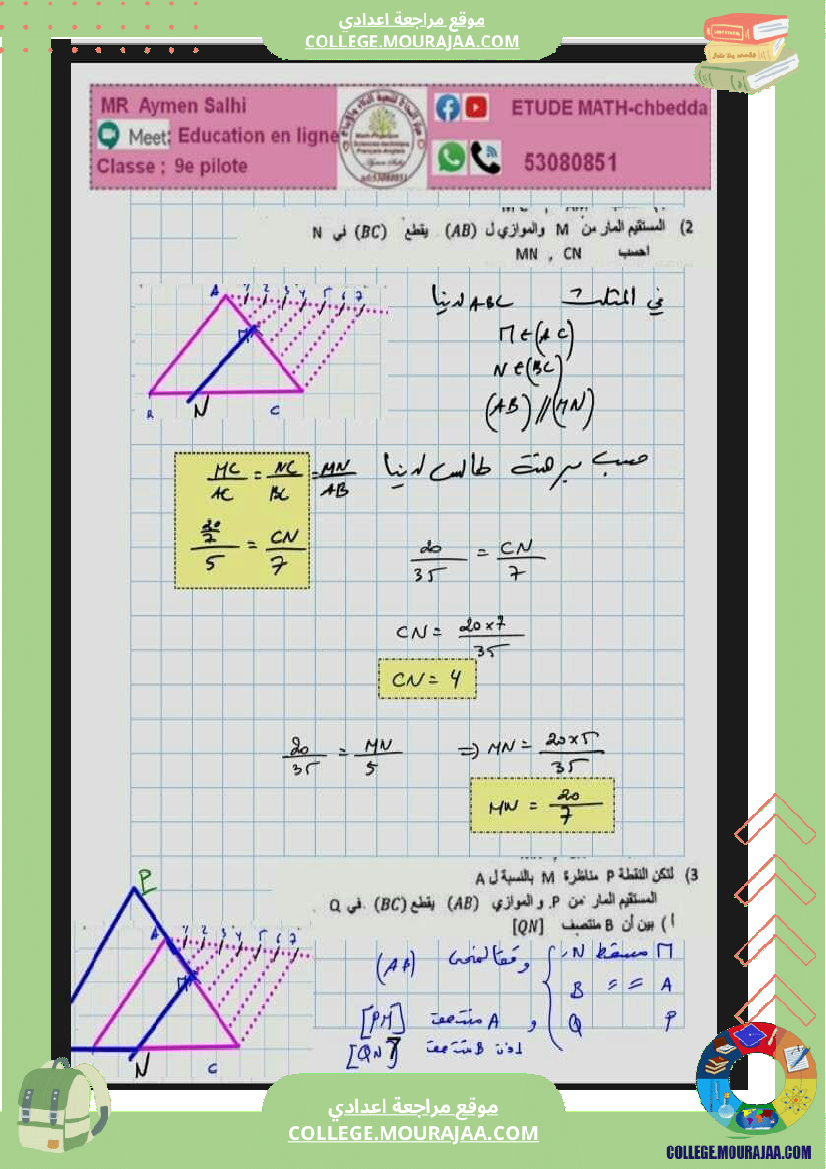 موقع مراجعة اعدادي
COLLEGE.MOURAJAA.COM
MR Aymen Salhi
Meet: Education en ligne
Classe : 9e pilote
ETUDE MATH-chbedda
53080851
2) المستقيم المار من M والموازي ل (AB) يقطع (BC) في N
احسب MN , CN
A 1 2 3 4 5 6 7
M
B N C
في المثلث ABC لدينا
M ∈ (AC)
N ∈ (BC)
(AB) // (MN)
حسب مبرهنة طالس لدينا
MC/AC = NC/BC = MN/AB
20/7/5 = CN/7
20/35 = CN/7
CN = 20×7/35
CN = 4
20/35 = MN/5 => MN = 20×5/35
MN = 20/7
3) لتكن النقطة P مناظرة M بالنسبة ل A
المستقيم المار من P و الموازي (AB) يقطع (BC) في Q
أ) بين أن B منتصف [QN]
P
A 1 2 3 4 5 6 7
M
N C
M مسقط N وفقا لمنحى (AB)
A = = B
P Q و A منتصف [PM]
اذن B منتصف [QN]
موقع مراجعة اعدادي
COLLEGE.MOURAJAA.COM
COLLEGE.MOURAJAA.COM